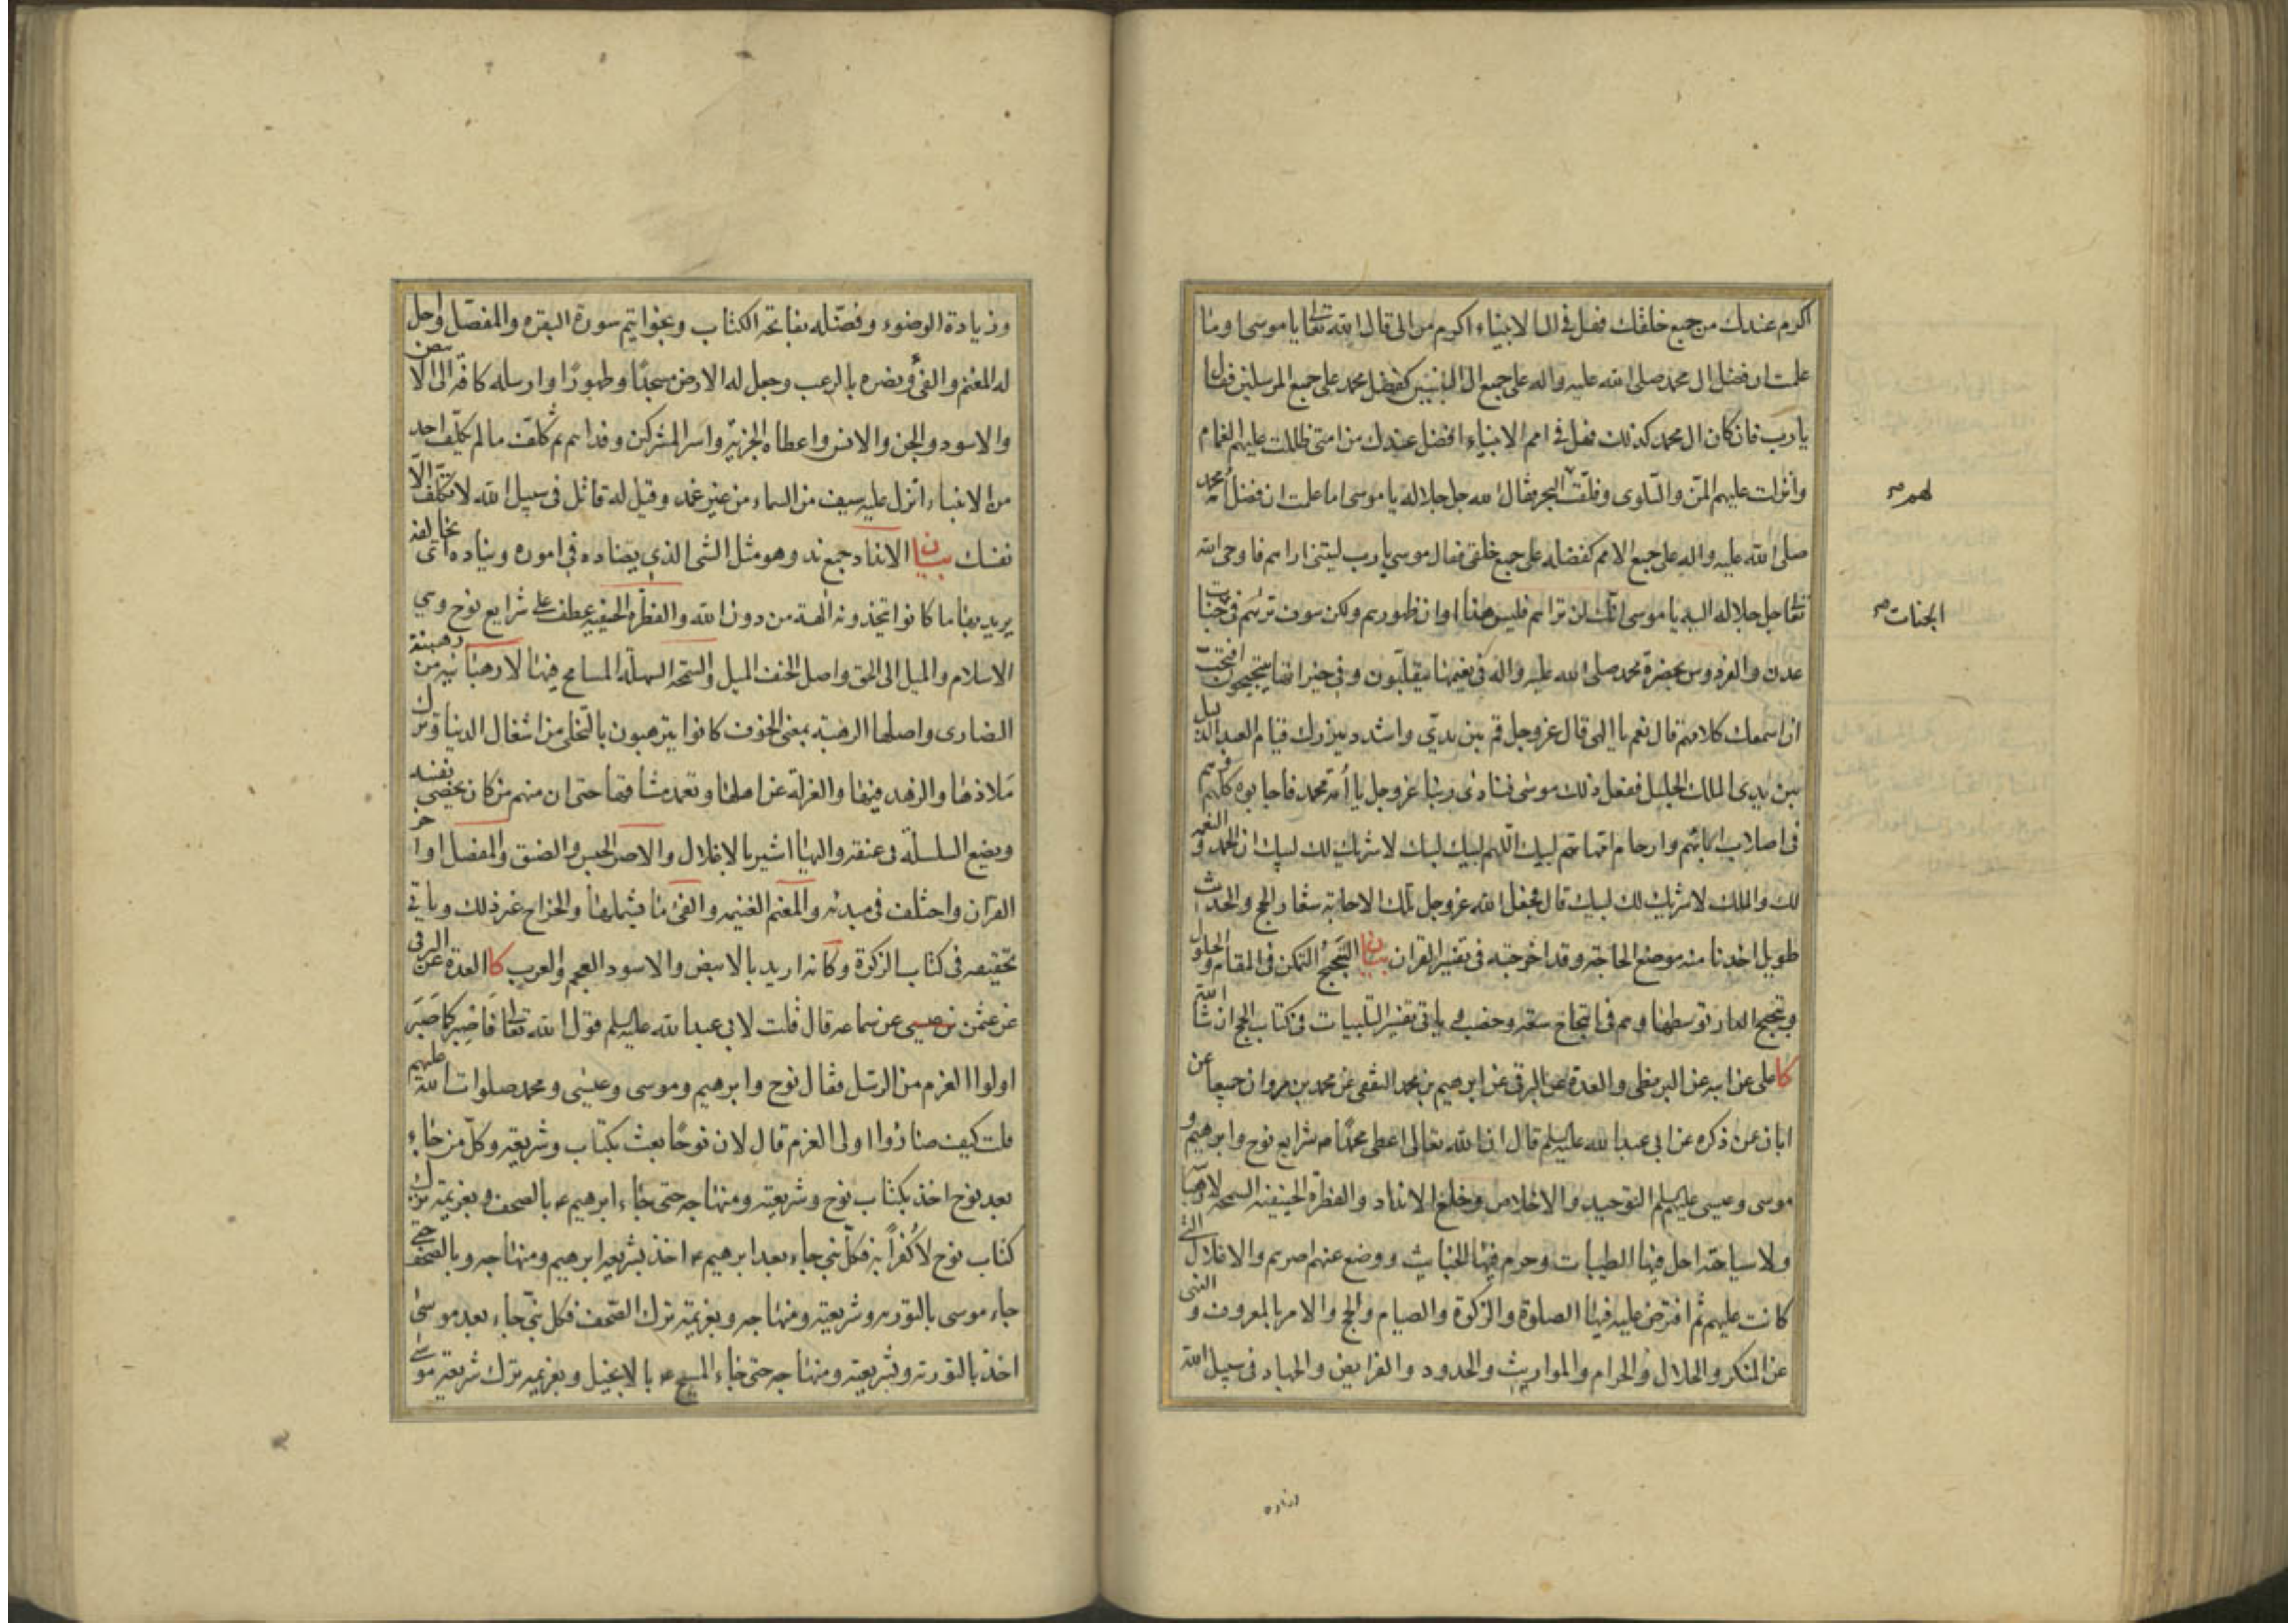 اكرم عندك من جميع خلقك فهل فى ال الانبياء اكرم من الى قال الله تعالى يا موسى اوما
علمت ان فضل ال محمد صلى الله عليه واله على جميع ال النبيين كفضل محمد على جميع المرسلين فقال
يا رب فان كان ال محمد كذلك فهل فى امم الانبياء افضل عندك من امتى ظللت عليهم الغمام
وانزلت عليهم المن والسلوى وفلقت البحر فقال الله جل جلاله يا موسى اما علمت ان فضل امة محمد
لهم
صلى الله عليه واله على جميع الامم كفضله على جميع خلقى فقال موسى يا رب ليتنى اراهم فاوحى الله
تعالى جل جلاله اليه يا موسى انك لن تراهم فليس هذا اوان ظهورهم ولكن سوف تراهم فى جنات
الجنات
عدن والفردوس بحضرة محمد صلى الله عليه واله فى نعيمها يتقلبون وفى خيراتها يتبحبحون افتحب
ان اسمعك كلامهم قال نعم يا الهى قال عز وجل قم بين يدى واشدد ميزرك قيام العبد الذليل
بين يدى الملك الجليل ففعل ذلك موسى فنادى ربنا عز وجل يا امة محمد فاجابوه كلهم وهم
فى اصلاب ابائهم وارحام امهاتهم لبيك اللهم لبيك لبيك لا شريك لك لبيك ان الحمد والنعمة
لك والملك لا شريك لك لبيك قال فجعل الله عز وجل تلك الاجابة شعار الحج والحديث
طويل اخذنا منه موضع الحاجة وقد اخرجته فى تفسير القران بيان التبحبح التمكن فى المقام والحلول
وتبحبح الدار توسطها وهم فى ابتحاح سعة وخصب وياتى تفسير التلبيات فى كتاب الحج ان شاء الله
كا على عن ابيه عن البزنطى والعدة عن البرقى عن ابرهيم بن محمد الثقفى عن محمد بن مروان جميعا عن
ابان عمن ذكره عن ابى عبد الله عليه السلم قال ان الله تعالى اعطى محمدا ص شرايع نوح وابرهيم و
موسى وعيسى عليهم السلم التوحيد والاخلاص وخلع الانداد والفطرة الحنيفية السمحة لا رهبانية
ولا سياحة احل فيها الطيبات وحرم فيها الخبايث ووضع عنهم اصرهم والاغلال التى
كانت عليهم ثم افترض عليه فيها الصلوة والزكوة والصيام والحج والامر بالمعروف والنهى
عن المنكر والحلال والحرام والمواريث والحدود والفرايض والجهاد فى سبيل الله
وزياده
وزيادة الوضوء وفضله بفاتحة الكتاب وبخواتيم سورة البقرة والمفصل واحل
له المغنم والفئ ونصره بالرعب وجعل له الارض مسجدا وطهورا وارسله كافة الى الابيض
والاسود والجن والانس واعطاه الجزية واسر المشركين وفداهم ثم كلف ما لم يكلف احد
من الانبياء انزل عليه سيف من السماء من غير غمد وقيل له قاتل فى سبيل الله لا تكلف الا
نفسك بيان الانداد جمع ند وهو مثل الشئ الذى يضاده فى اموره ويناده اى يخالفه
يريد بها ما كانوا يتخذونه الهة من دون الله والفطرة الحنيفية عطف على شرايع نوح وهي
الاسلام والميل الى الحق واصل الحنف الميل والسمحة السهلة المسامح فيها لا رهبانية من رهبنة
النصارى واصلها الرهبة بمعنى الخوف كانوا يترهبون بالتخلى من اشغال الدنيا وترك
ملاذها والزهد فيها والعزلة عن اهلها وتعمد مشاقها حتى ان منهم من كان يخصى نفسه
ويضع السلسلة فى عنقه واليها اشير بالاغلال والاصر الحبس والضيق والمفصل اواخر
القران واختلف فى مبدئه والمغنم الغنيمة والفئ ما يشملها والخراج غير ذلك وياتى
تحقيقه فى كتاب الزكوة وكانه اريد بالابيض والاسود العجم والعرب كا العدة عن البرقى
عن عثمن بن عيسى عن سماعة قال قلت لابى عبد الله عليه السلم قول الله تعالى فاصبر كما صبر
اولوا العزم من الرسل فقال نوح وابرهيم وموسى وعيسى ومحمد صلوات الله عليهم
قلت كيف صاروا اولى العزم قال لان نوحا بعث بكتاب وشريعة وكل من جاء
بعد نوح اخذ بكتاب نوح وشريعته ومنهاجه حتى جاء ابرهيم ع بالصحف وبعزيمة ترك
كتاب نوح لا كفرا به فكل نبى جاء بعد ابرهيم ع اخذ بشريعة ابرهيم ومنهاجه وبالصحف حتى
جاء موسى بالتورية وشريعته ومنهاجه وبعزيمة ترك الصحف فكل نبى جاء بعد موسى
اخذ بالتورية وشريعته ومنهاجه حتى جاء المسيح ع بالانجيل وبعزيمة ترك شريعة موسى